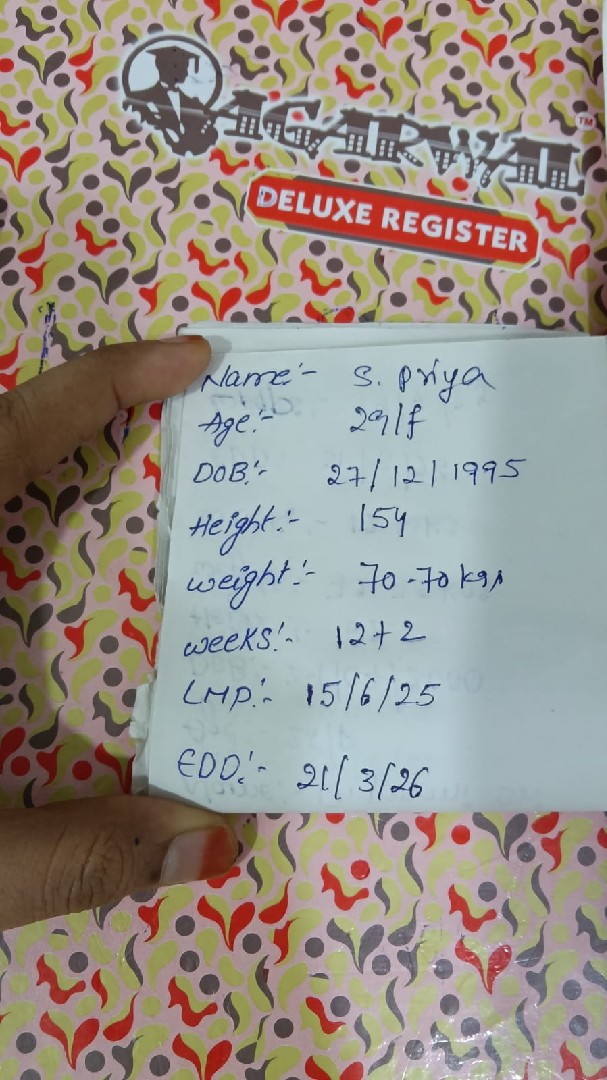 AGARWAL TM
DELUXE REGISTER
Name:- S. Priya
Age:- 29/f
DOB:- 27/12/1995
Height:- 154
weight:- 70-70 kgs
weeks:- 12+2
LMP:- 15/6/25
EDD:- 21/3/26